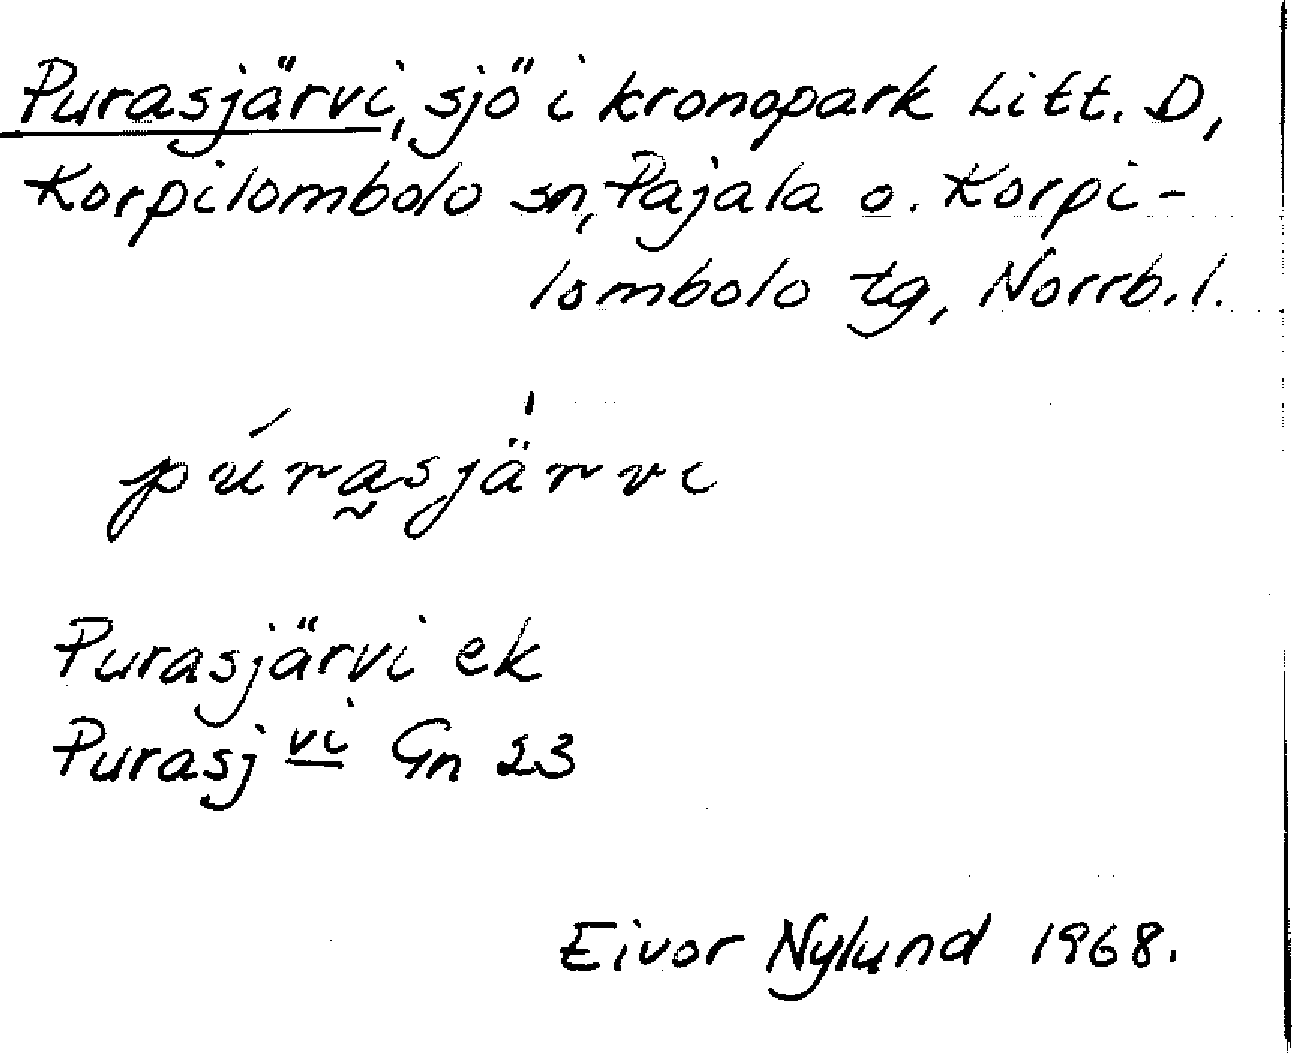 Purasjärvi, sjö i kronopark Litt. D,
Korpilombolo sn, Pajala o. Korpi-
lombolo tg, Norrb.l.
púra̰sjä̍rvi
Purasjärvi ek
Purasj vi Gn 23
Eivor Nylund 1968.